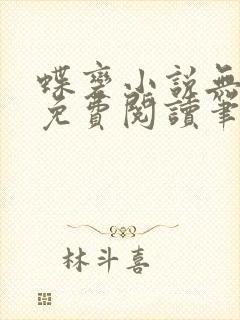 蝶变小说無
免費閱讀筆
林斗喜